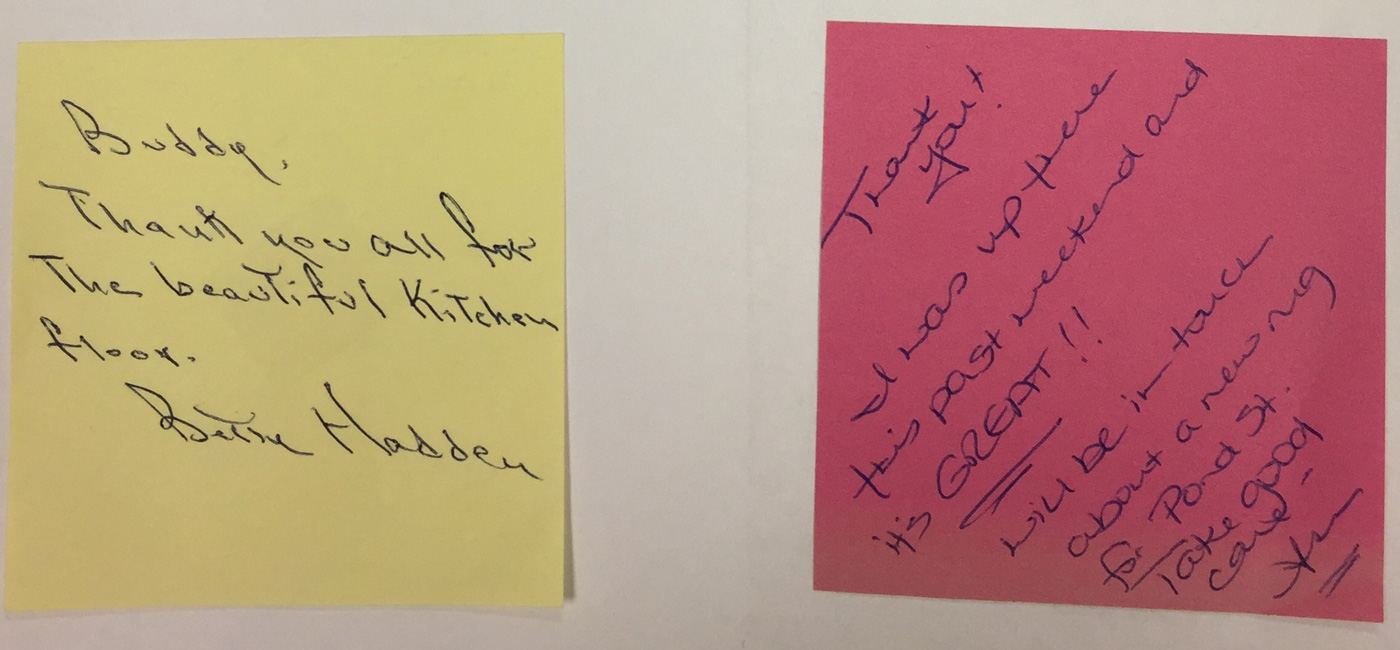 Buddy,
Thank you all for
The beautiful Kitchen
floor.
Hadden
Thank
you!
I was up there
this past weekend and
it's GREAT!!
will be in touch
about a new rug
for Pond St.
Take good
care!